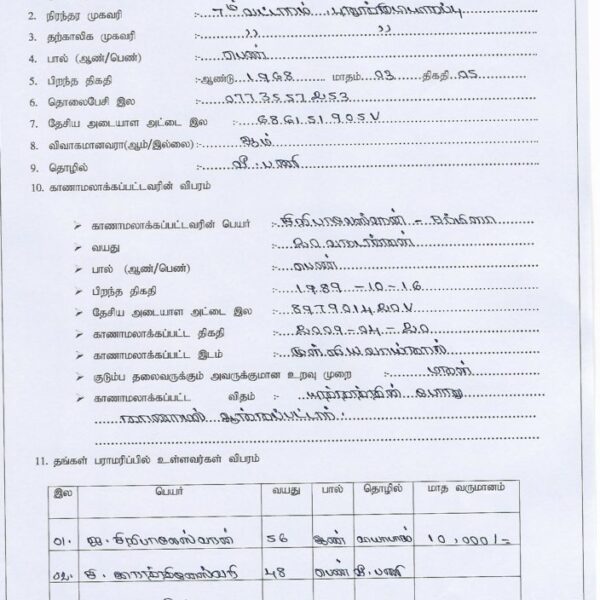 2. நிரந்தர முகவரி :- 7ம் வட்டாரம்
3. தற்காலிக முகவரி :- ,, ,,
4. பால் (ஆண்/பெண்) :- பெண்
5. பிறந்த திகதி :-ஆண்டு 1968 மாதம் 03 திகதி 05
6. தொலைபேசி இல :- 0773557253
7. தேசிய அடையாள அட்டை இல :- 686151905V
8. விவாகமானவரா(ஆம்/இல்லை) :- ஆம்
9. தொழில் :- வீ. பணி
10. காணாமலாக்கப்பட்டவரின் விபரம்
➤ காணாமலாக்கப்பட்டவரின் பெயர் :-
➤ வயது :- 20
➤ பால் (ஆண்/பெண்) :- பெண்
➤ பிறந்த திகதி :- 1989-10-16
➤ தேசிய அடையாள அட்டை இல :-
➤ காணாமலாக்கப்பட்ட திகதி :- 2009-04-20
➤ காணாமலாக்கப்பட்ட இடம் :-
➤ குடும்ப தலைவருக்கும் அவருக்குமான உறவு முறை :- மகள்
➤ காணாமலாக்கப்பட்ட விதம் :- யுத்தத்தின் போது
காணாமல் ஆக்கப்பட்டார்.
11. தங்கள் பராமரிப்பில் உள்ளவர்கள் விபரம்
இல பெயர் வயது பால் தொழில் மாத வருமானம்
01. 56 ஆண் 10,000/=
02. 48 பெண் வீ. பணி